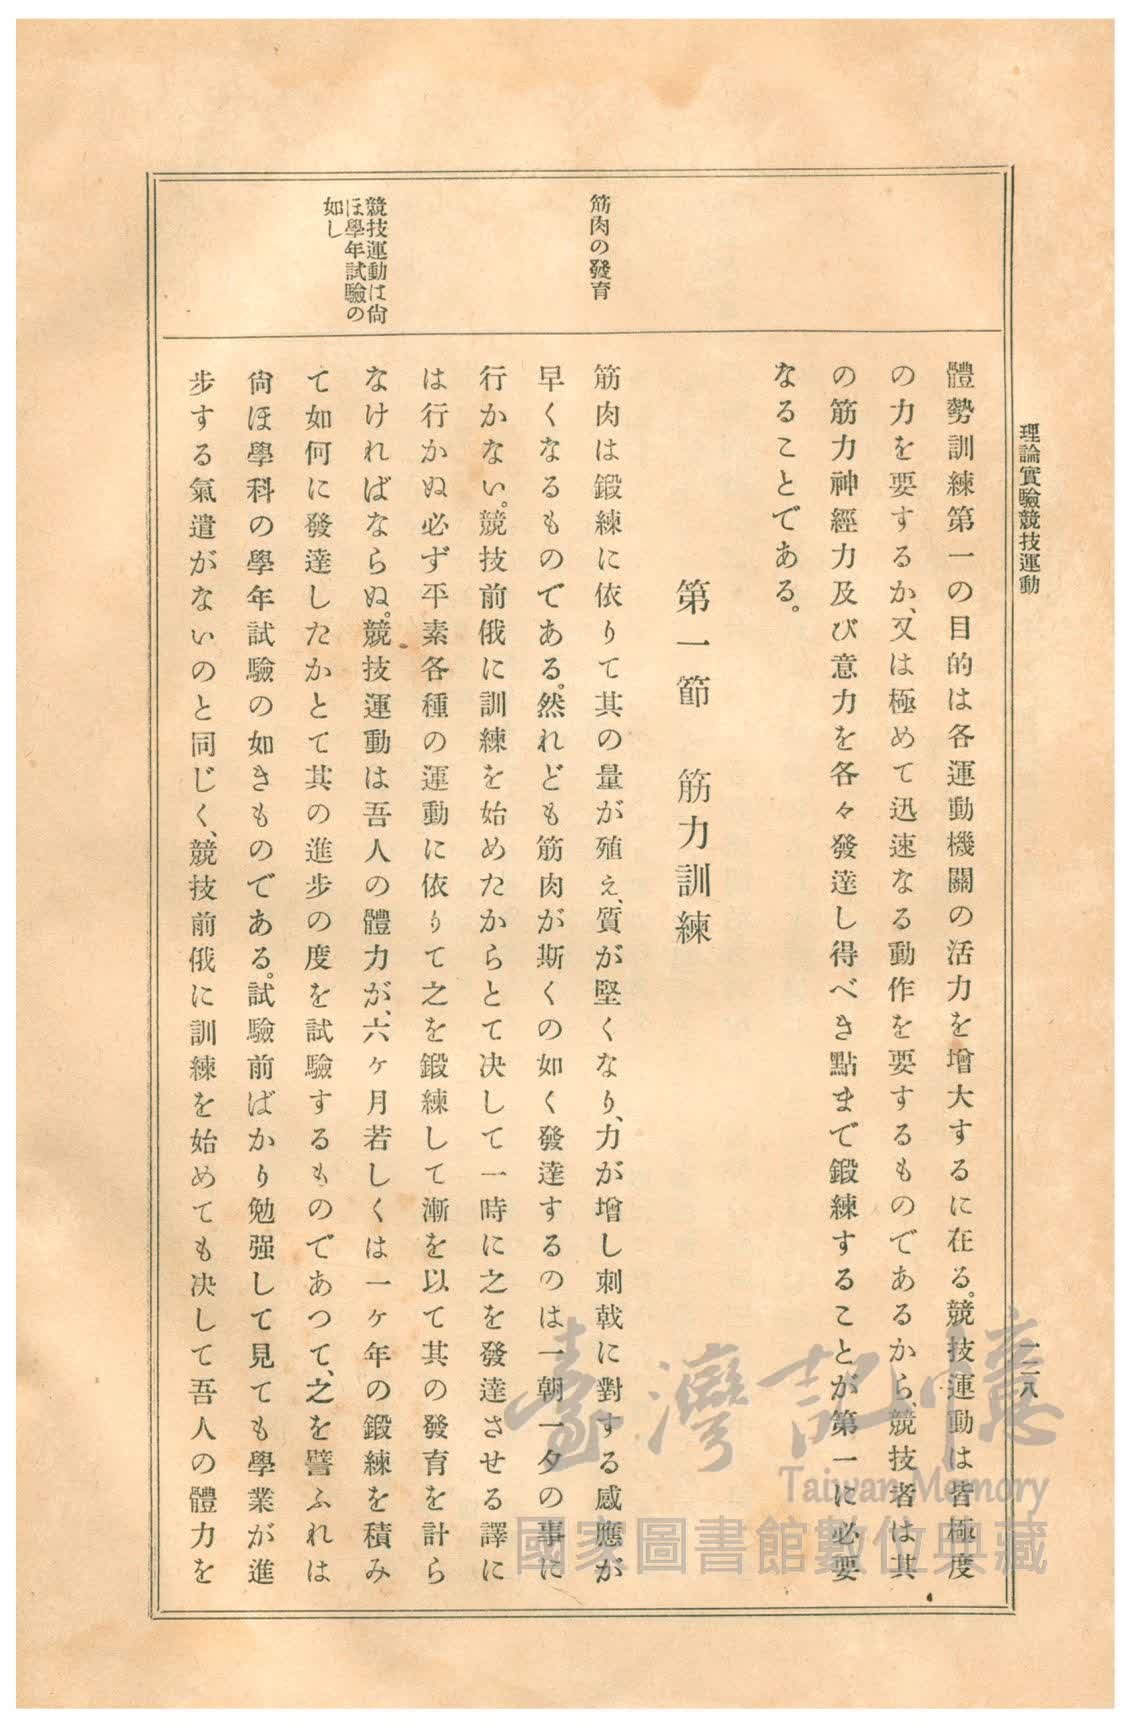 理論實驗競技運動
一二八
體勢訓練第一の目的は各運動機關の活力を增大するに在る。競技運動は皆極度
の力を要するか、又は極めて迅速なる動作を要するものであるから、競技者は其
の筋力神經力及び意力を各々發達し得べき點まで鍛練することが第一に必要
なることである。
第一節　筋力訓練
筋肉の發育
筋肉は鍛練に依りて其の量が殖え、質が堅くなり、力が增し刺戟に對する感應が
早くなるものである。然れども筋肉が斯くの如く發達するのは一朝一夕の事に
行かない。競技前俄に訓練を始めたからとて决して一時に之を發達させる譯に
は行かぬ必ず平素各種の運動に依りて之を鍛練して漸を以て其の發育を計ら
競技運動は尙
ほ學年試驗の
如し
なければならぬ。競技運動は吾人の體力が、六ヶ月若しくは一ヶ年の鍛練を積み
て如何に發達したかとて其の進步の度を試驗するものであつて、之を譬ふれは
尙ほ學科の學年試驗の如きものである。試驗前ばかり勉强して見ても學業が進
步する氣遣がないのと同じく、競技前俄に訓練を始めても决して吾人の體力を
臺灣記憶
Taiwan Memory
國家圖書館數位典藏